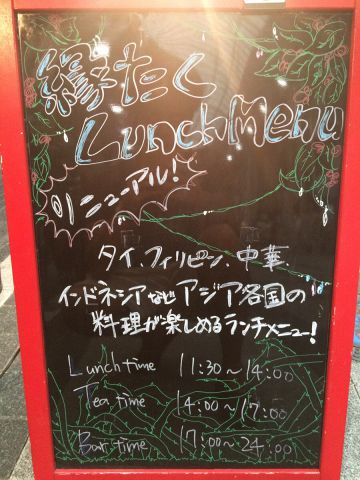 縁たく
Lunch Menu
リニューアル!
タイ、フィリピン、中華、
インドネシアなどアジア各国の
料理が楽しめるランチメニュー!
Lunch time 11:30～14:00
Tea time 14:00～17:00
Bar time 17:00～24:00